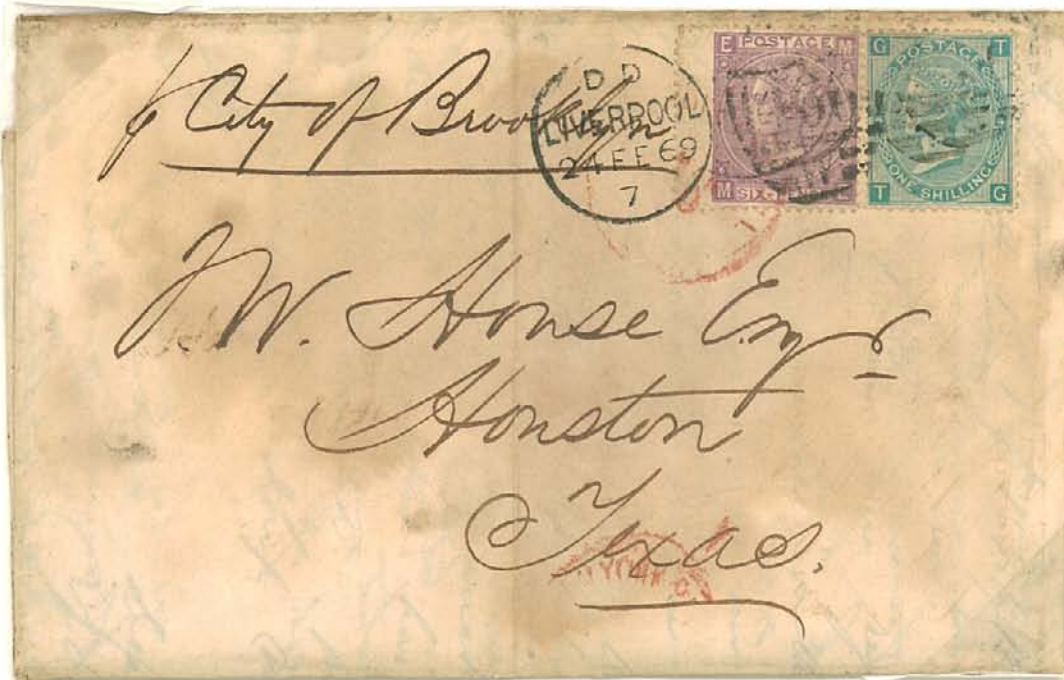 p City of Brooklyn
D D
LIVERPOOL
24 FE 69
7
E POSTAGE M
M SIX E
G POSTAGE T
ONE SHILLING
T G
T W. House Esqr
Houston
Texas.